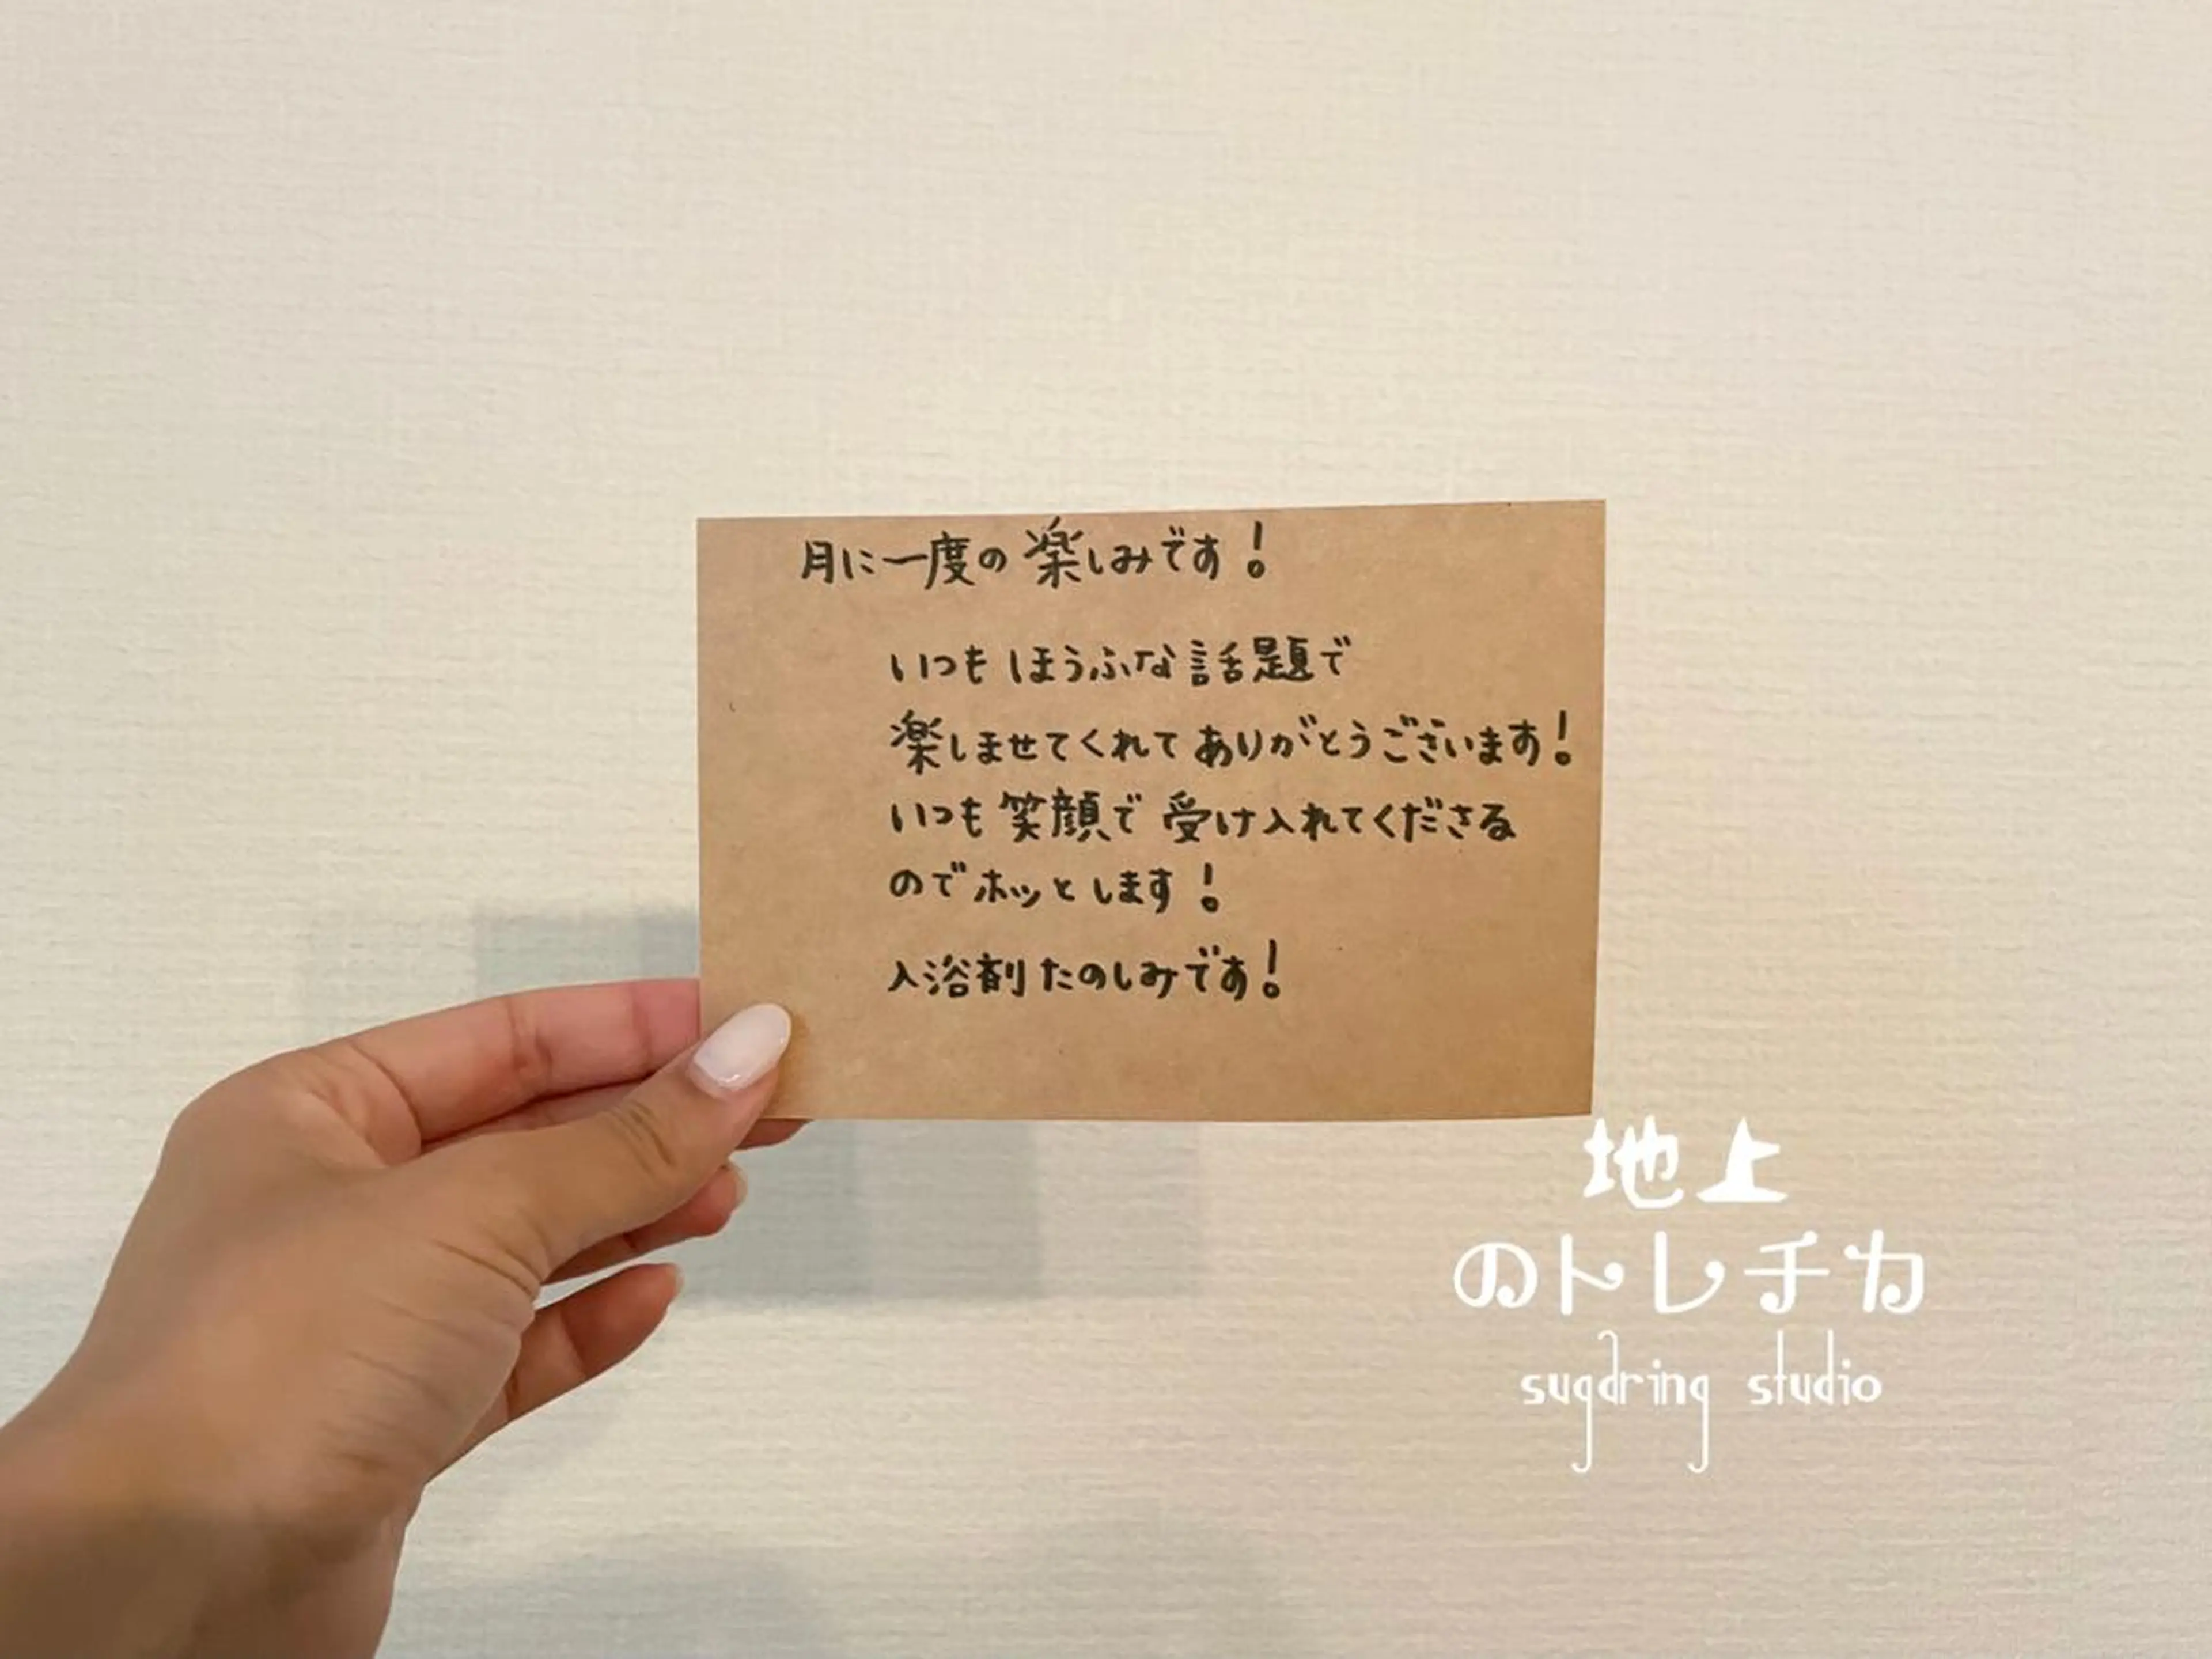 月に一度の楽しみです!
いつもほうふな話題で
楽しませてくれてありがとうございます!
いつも笑顔で受け入れてくださる
のでホッとします!
入浴剤たのしみです!
地上
のトレチカ
sugdring studio